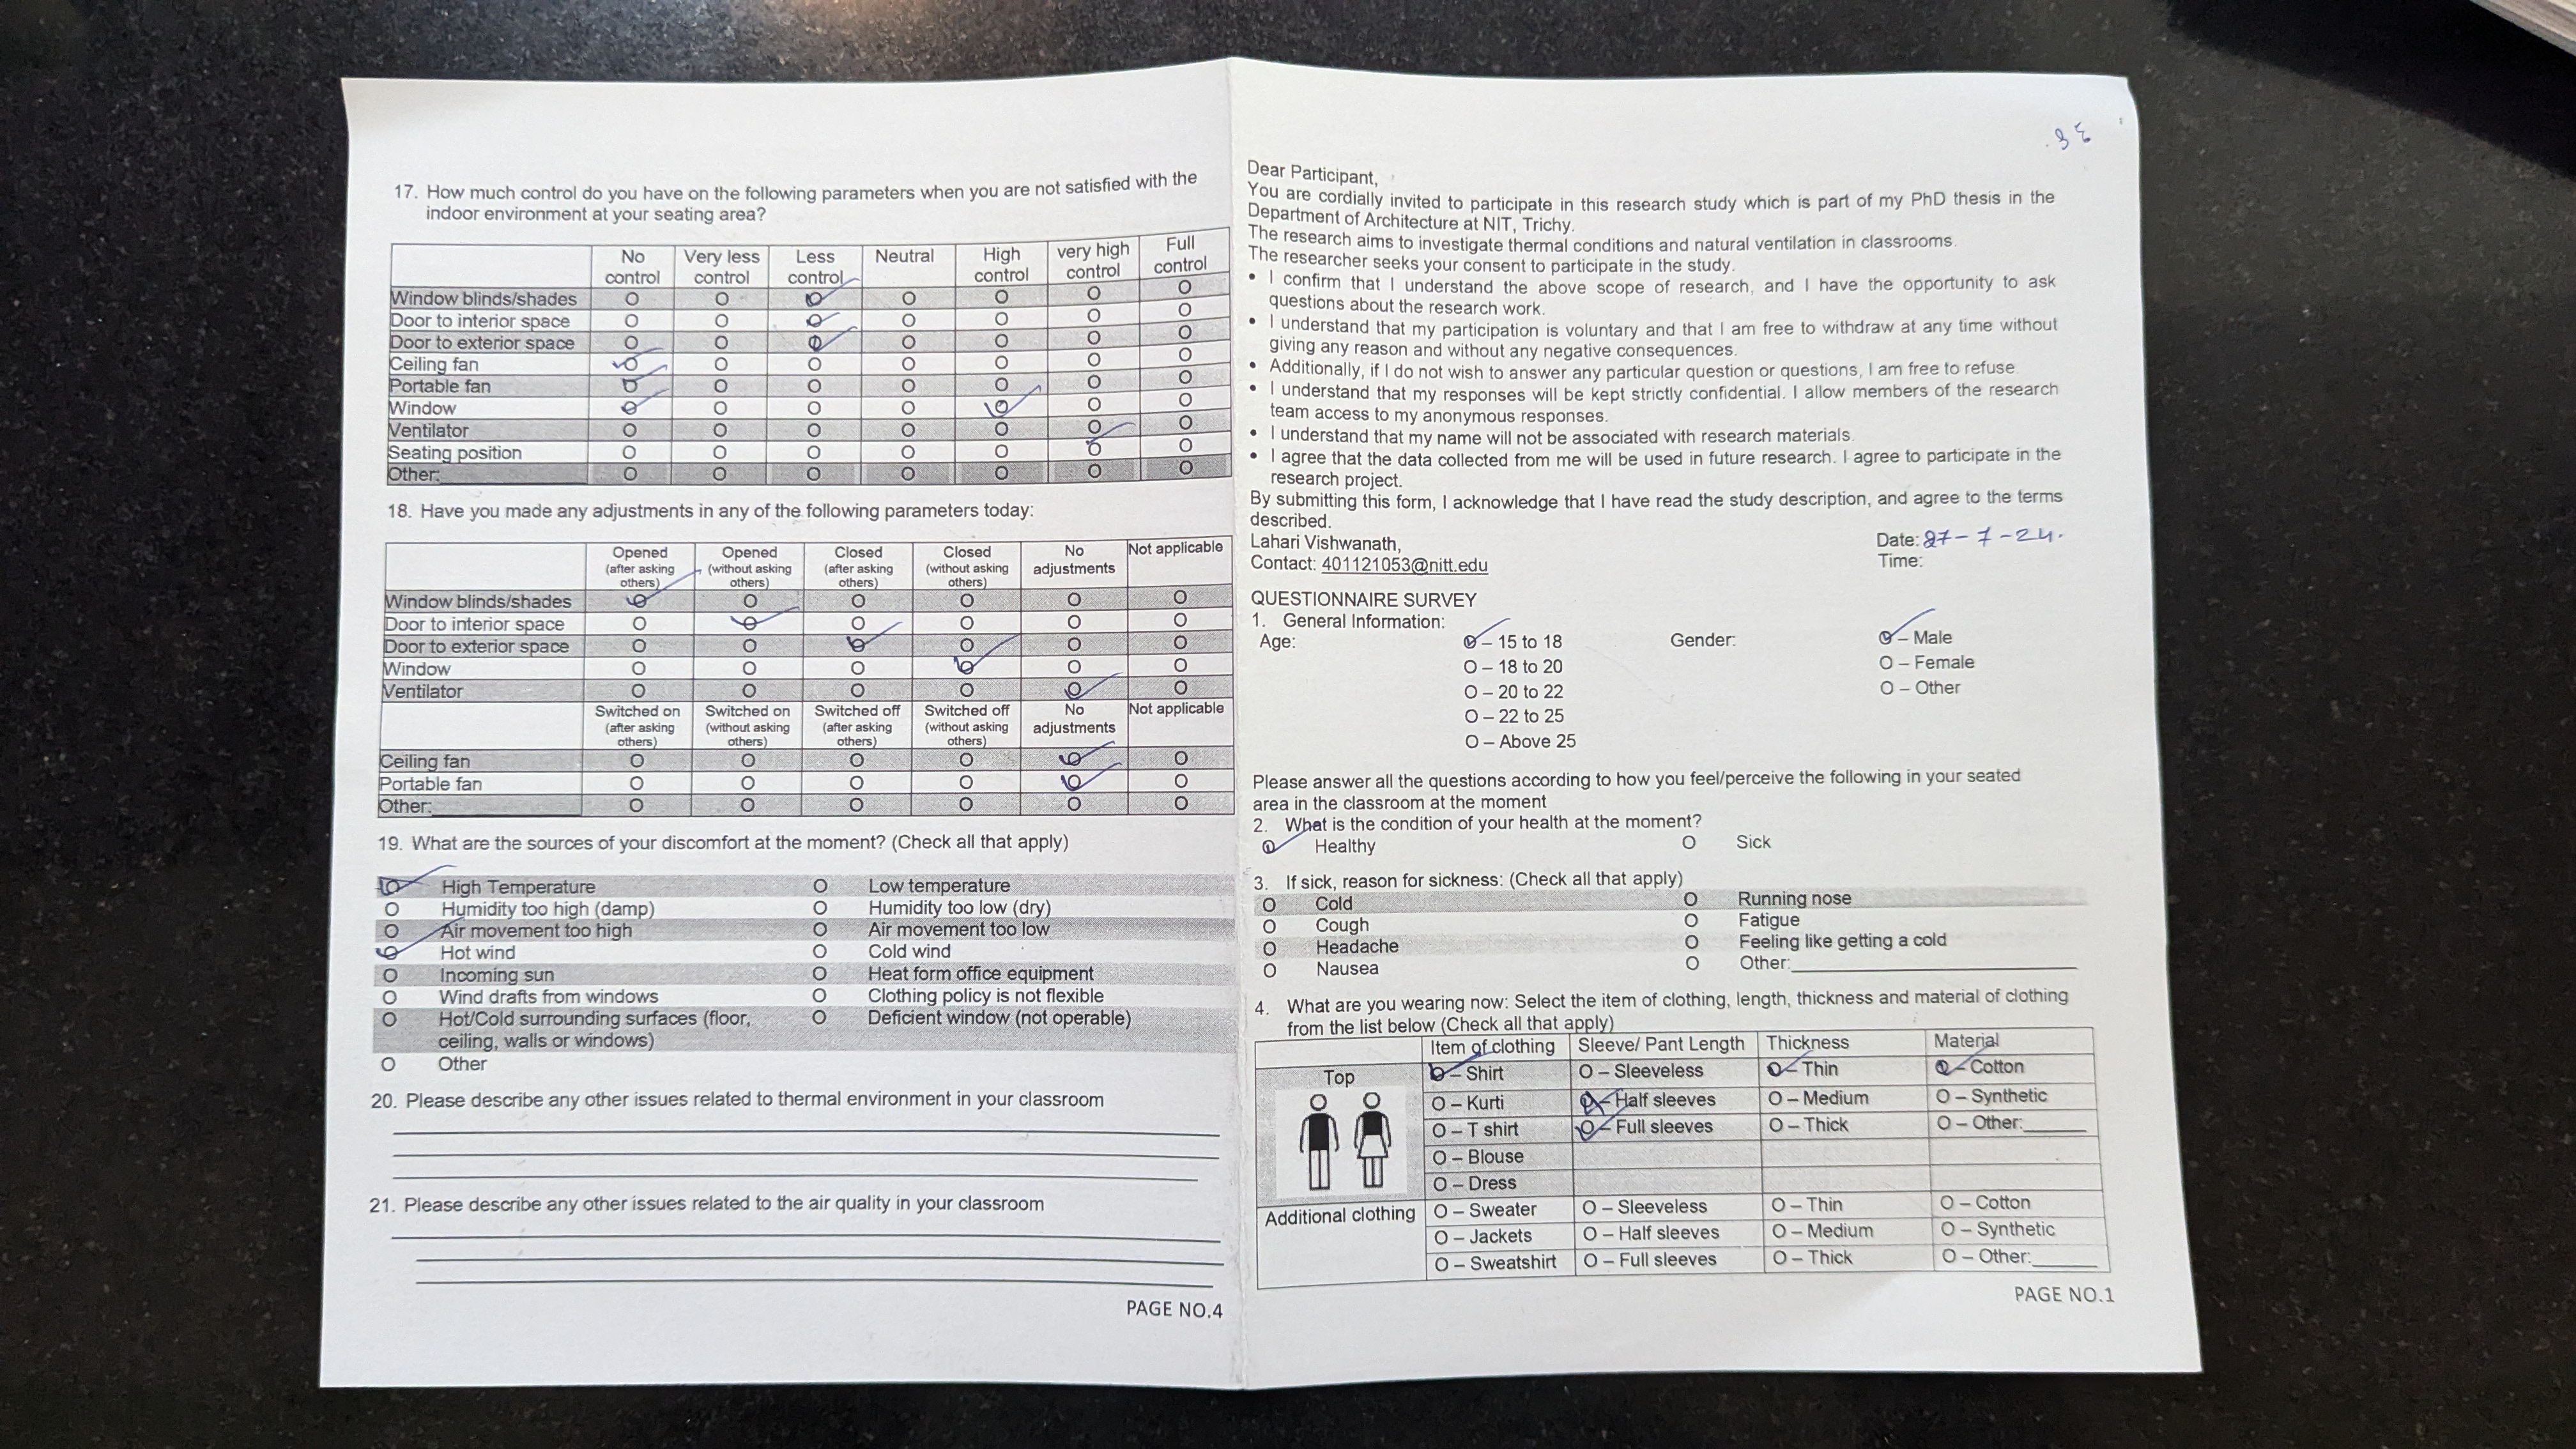 17. How much control do you have on the following parameters when you are not satisfied with the
indoor environment at your seating area?
No control Very less control Less control Neutral High control very high control Full control
Window blinds/shades O O O O O O O
Door to interior space O O O O O O O
Door to exterior space O O O O O O O
Ceiling fan O O O O O O O
Portable fan O O O O O O O
Window O O O O O O O
Ventilator O O O O O O O
Seating position O O O O O O O
Other: O O O O O O O
18. Have you made any adjustments in any of the following parameters today:
Opened (after asking others) Opened (without asking others) Closed (after asking others) Closed (without asking others) No adjustments Not applicable
Window blinds/shades O O O O O O
Door to interior space O O O O O O
Door to exterior space O O O O O O
Window O O O O O O
Ventilator O O O O O O
Switched on (after asking others) Switched on (without asking others) Switched off (after asking others) Switched off (without asking others) No adjustments Not applicable
Ceiling fan O O O O O O
Portable fan O O O O O O
Other: O O O O O O
19. What are the sources of your discomfort at the moment? (Check all that apply)
O High Temperature O Low temperature
O Humidity too high (damp) O Humidity too low (dry)
O Air movement too high O Air movement too low
O Hot wind O Cold wind
O Incoming sun O Heat form office equipment
O Wind drafts from windows O Clothing policy is not flexible
O Hot/Cold surrounding surfaces (floor, O Deficient window (not operable)
ceiling, walls or windows)
O Other
20. Please describe any other issues related to thermal environment in your classroom
21. Please describe any other issues related to the air quality in your classroom
PAGE NO.4
Dear Participant,
You are cordially invited to participate in this research study which is part of my PhD thesis in the
Department of Architecture at NIT, Trichy.
The research aims to investigate thermal conditions and natural ventilation in classrooms.
The researcher seeks your consent to participate in the study.
• I confirm that I understand the above scope of research, and I have the opportunity to ask
questions about the research work.
• I understand that my participation is voluntary and that I am free to withdraw at any time without
giving any reason and without any negative consequences.
• Additionally, if I do not wish to answer any particular question or questions, I am free to refuse
• I understand that my responses will be kept strictly confidential. I allow members of the research
team access to my anonymous responses.
• I understand that my name will not be associated with research materials.
• I agree that the data collected from me will be used in future research. I agree to participate in the
research project.
By submitting this form, I acknowledge that I have read the study description, and agree to the terms
described.
Lahari Vishwanath, Date: 27-7-24.
Contact: 401121053@nitt.edu Time:
QUESTIONNAIRE SURVEY
1. General Information:
Age: O – 15 to 18 Gender: O – Male
O – 18 to 20 O – Female
O – 20 to 22 O – Other
O – 22 to 25
O – Above 25
Please answer all the questions according to how you feel/perceive the following in your seated
area in the classroom at the moment
2. What is the condition of your health at the moment?
O Healthy O Sick
3. If sick, reason for sickness: (Check all that apply)
O Cold O Running nose
O Cough O Fatigue
O Headache O Feeling like getting a cold
O Nausea O Other:
4. What are you wearing now: Select the item of clothing, length, thickness and material of clothing
from the list below (Check all that apply)
Item of clothing Sleeve/ Pant Length Thickness Material
Top O – Shirt O – Sleeveless O – Thin O – Cotton
O – Kurti O – Half sleeves O – Medium O – Synthetic
O – T shirt O – Full sleeves O – Thick O – Other:
O – Blouse
O – Dress
Additional clothing O – Sweater O – Sleeveless O – Thin O – Cotton
O – Jackets O – Half sleeves O – Medium O – Synthetic
O – Sweatshirt O – Full sleeves O – Thick O – Other:
PAGE NO.1